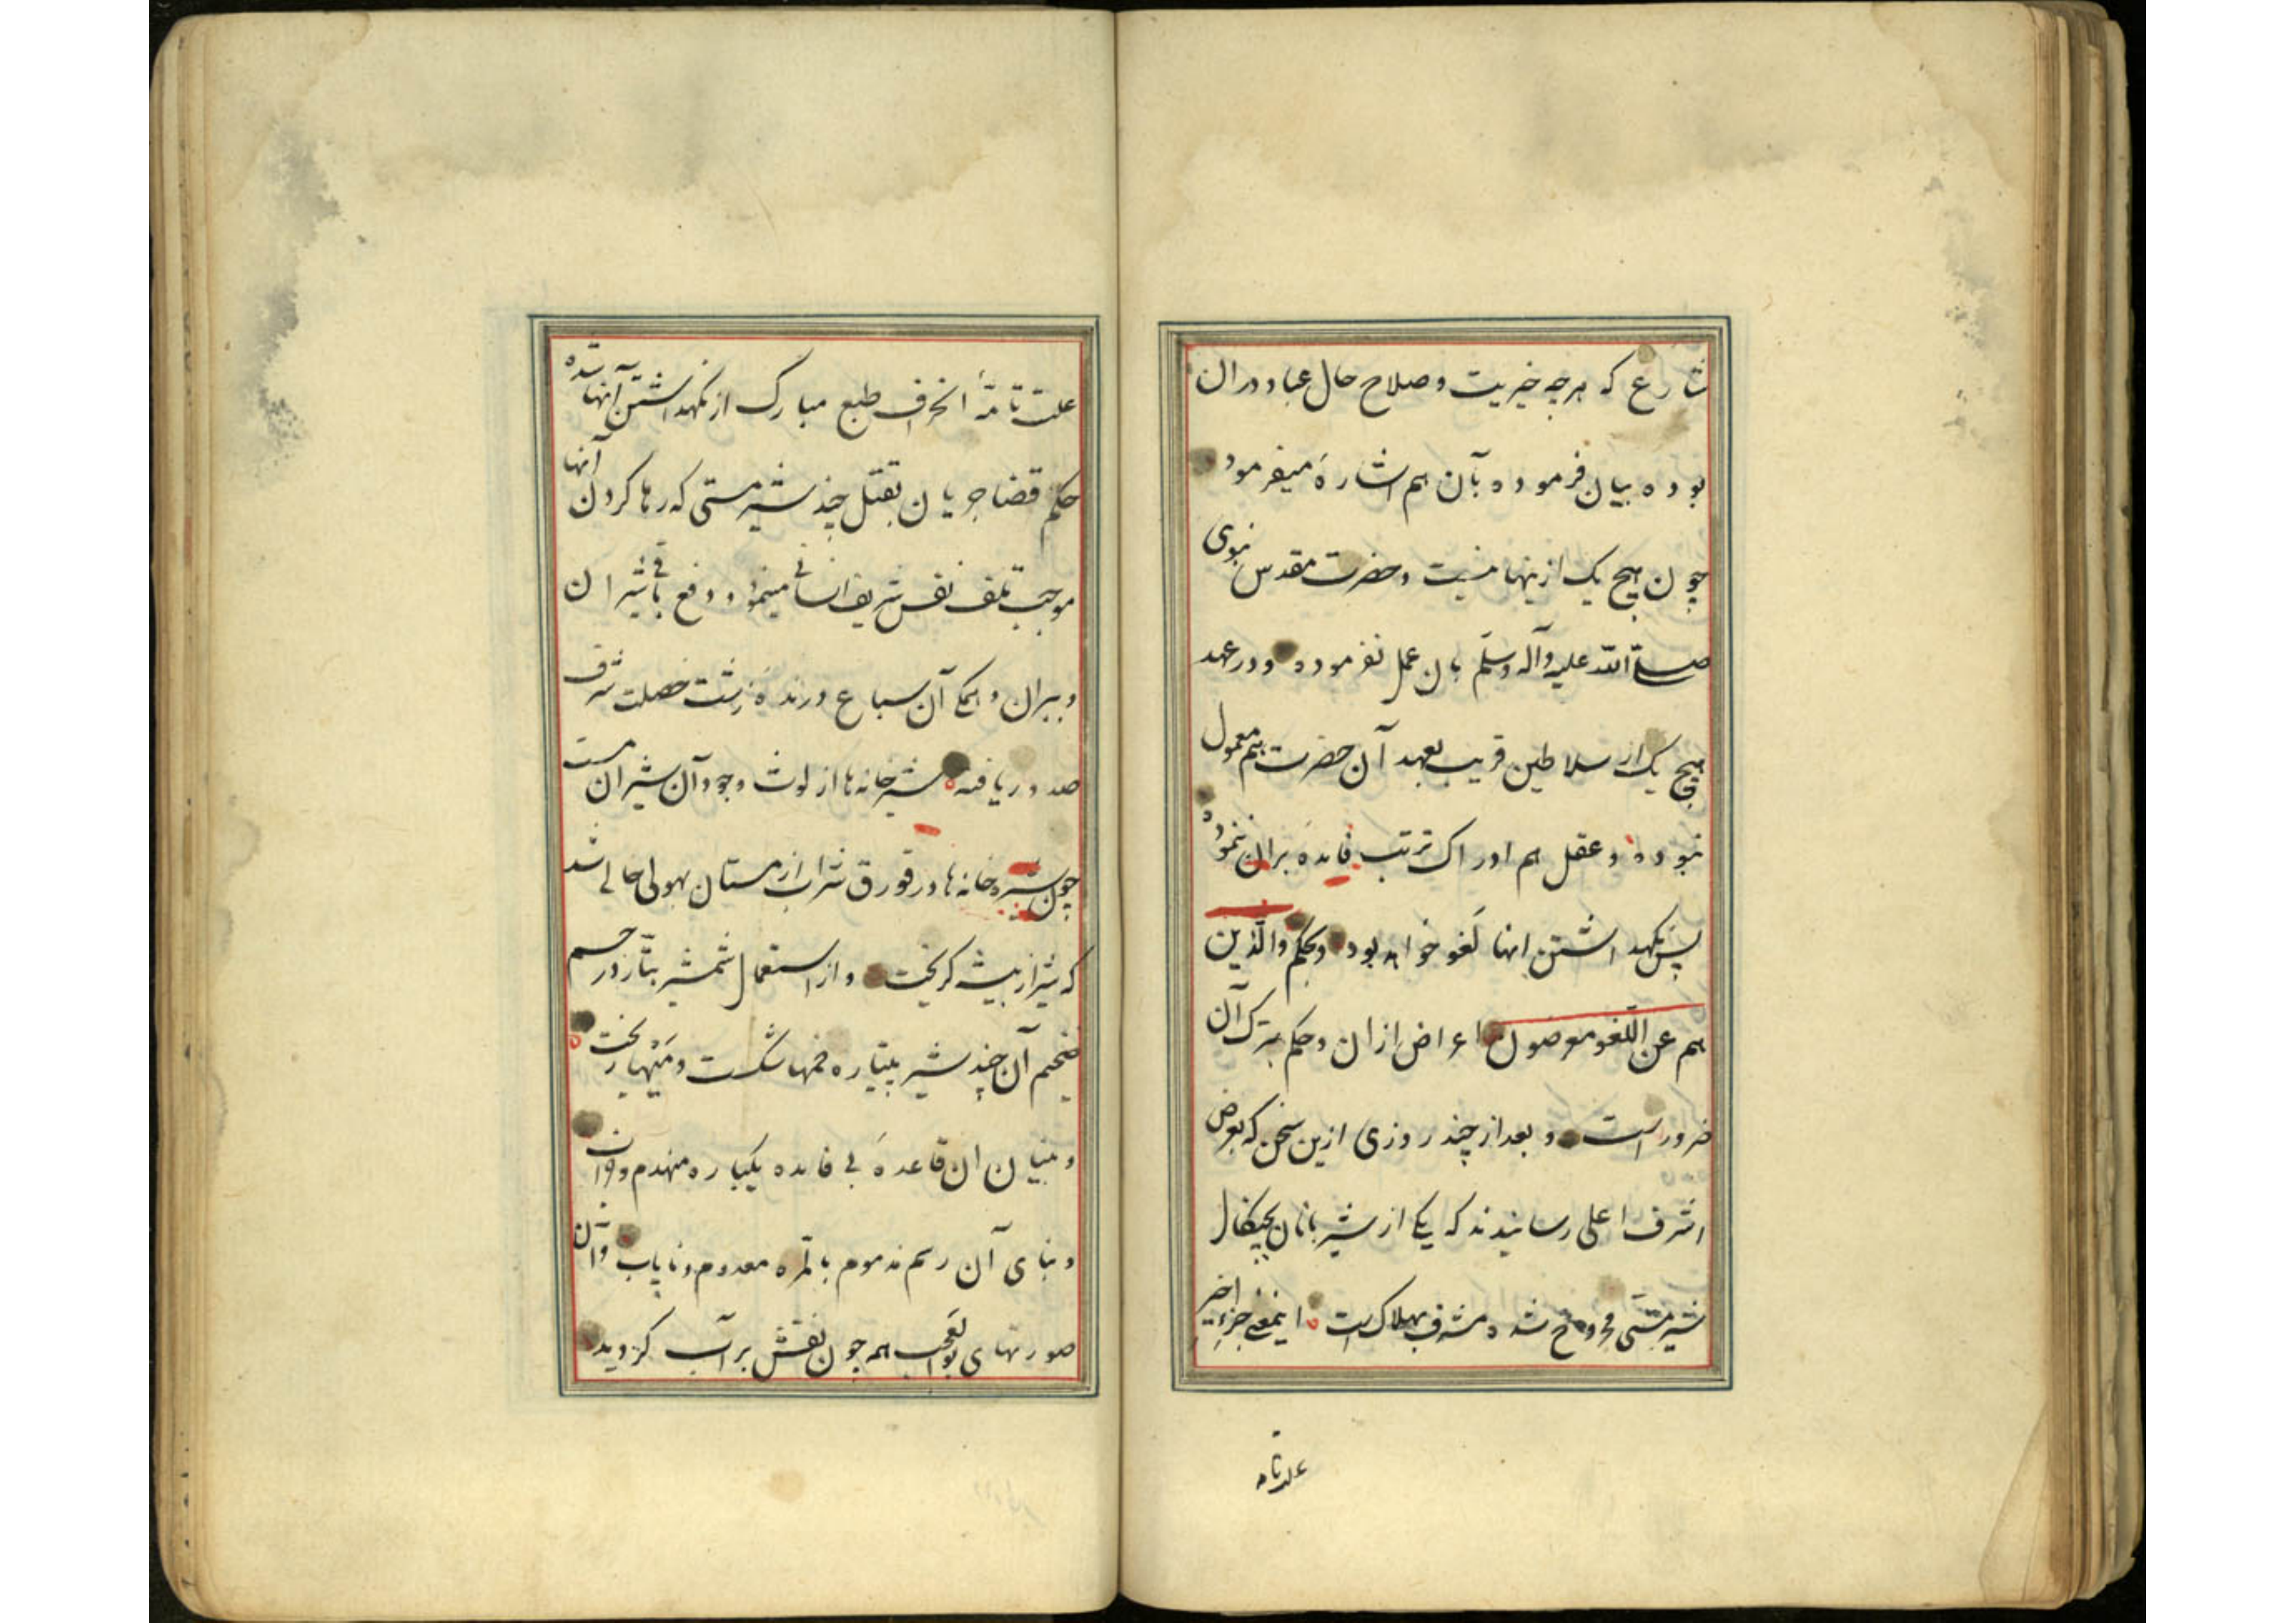 شارع که هرچه خیریت و صلاح حال عباد دران
بوده بیان فرموده بآن هم اشارهٔ میفرمود
چون هیچ یک ازینها نیست و حضرت مقدس نبوی
صلی الله علیه وآله وسلم بان عمل نفرموده و در عهد
هیچ یک از سلاطین قریب بعهد آن حضرت هم معمول
نبوده و عقل هم ادراک ترتب فایدهٔ بران ننموده
پس نکهداشتن انها لغو خواهد بود و بحکم والّذین
هم عن اللّغو معرضون اعراض ازان و حکم بترک آن
ضرور است و بعد از چند روزی ازین سخن که بعرض
اشرف اعلی رسانیدند که یکی از شیربانان بچنکال
شیر مستی مجروح شده مشرف بهلاک است اینمعنی جزء اخیر
علت تامه
علت تامّهٔ انحراف طبع مبارک از نکهداشتن آنها شده
حکم قضا جریان بقتل چند شیر مستی که رها کردن آنها
موجب تلف نفس شریف انسانی مینمود و دفع باقی شیران
و ببران و همکی آن سباع درندهٔ زشت خصلت شرف
صدور یافته شیرخانه‌ها از لوث وجود آن شیران مست
چون شیره‌خانه‌ها در قورق شراب از مستان بهولی خالی شد
که شیر از بیشه کریخت و از استعمال شمشیر بتّار در جسم
ضخیم آن چند شیر پتیاره خمها شکست و میها ریخت
و بنیان ان قاعدهٔ بی فایده یکباره منهدم و
و بنای آن رسم مذموم بالمرّه معدوم و نایاب و آن
صورتهای بوالعجب همه چون نقش بر آب کردید